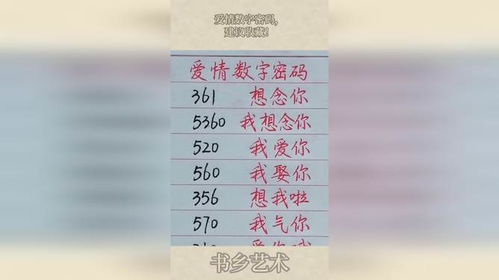 爱情数字密码,
建议收藏!
爱情数字密码
361 想念你
5360 我想念你
520 我爱你
560 我娶你
356 想我啦
570 我气你
书乡艺术